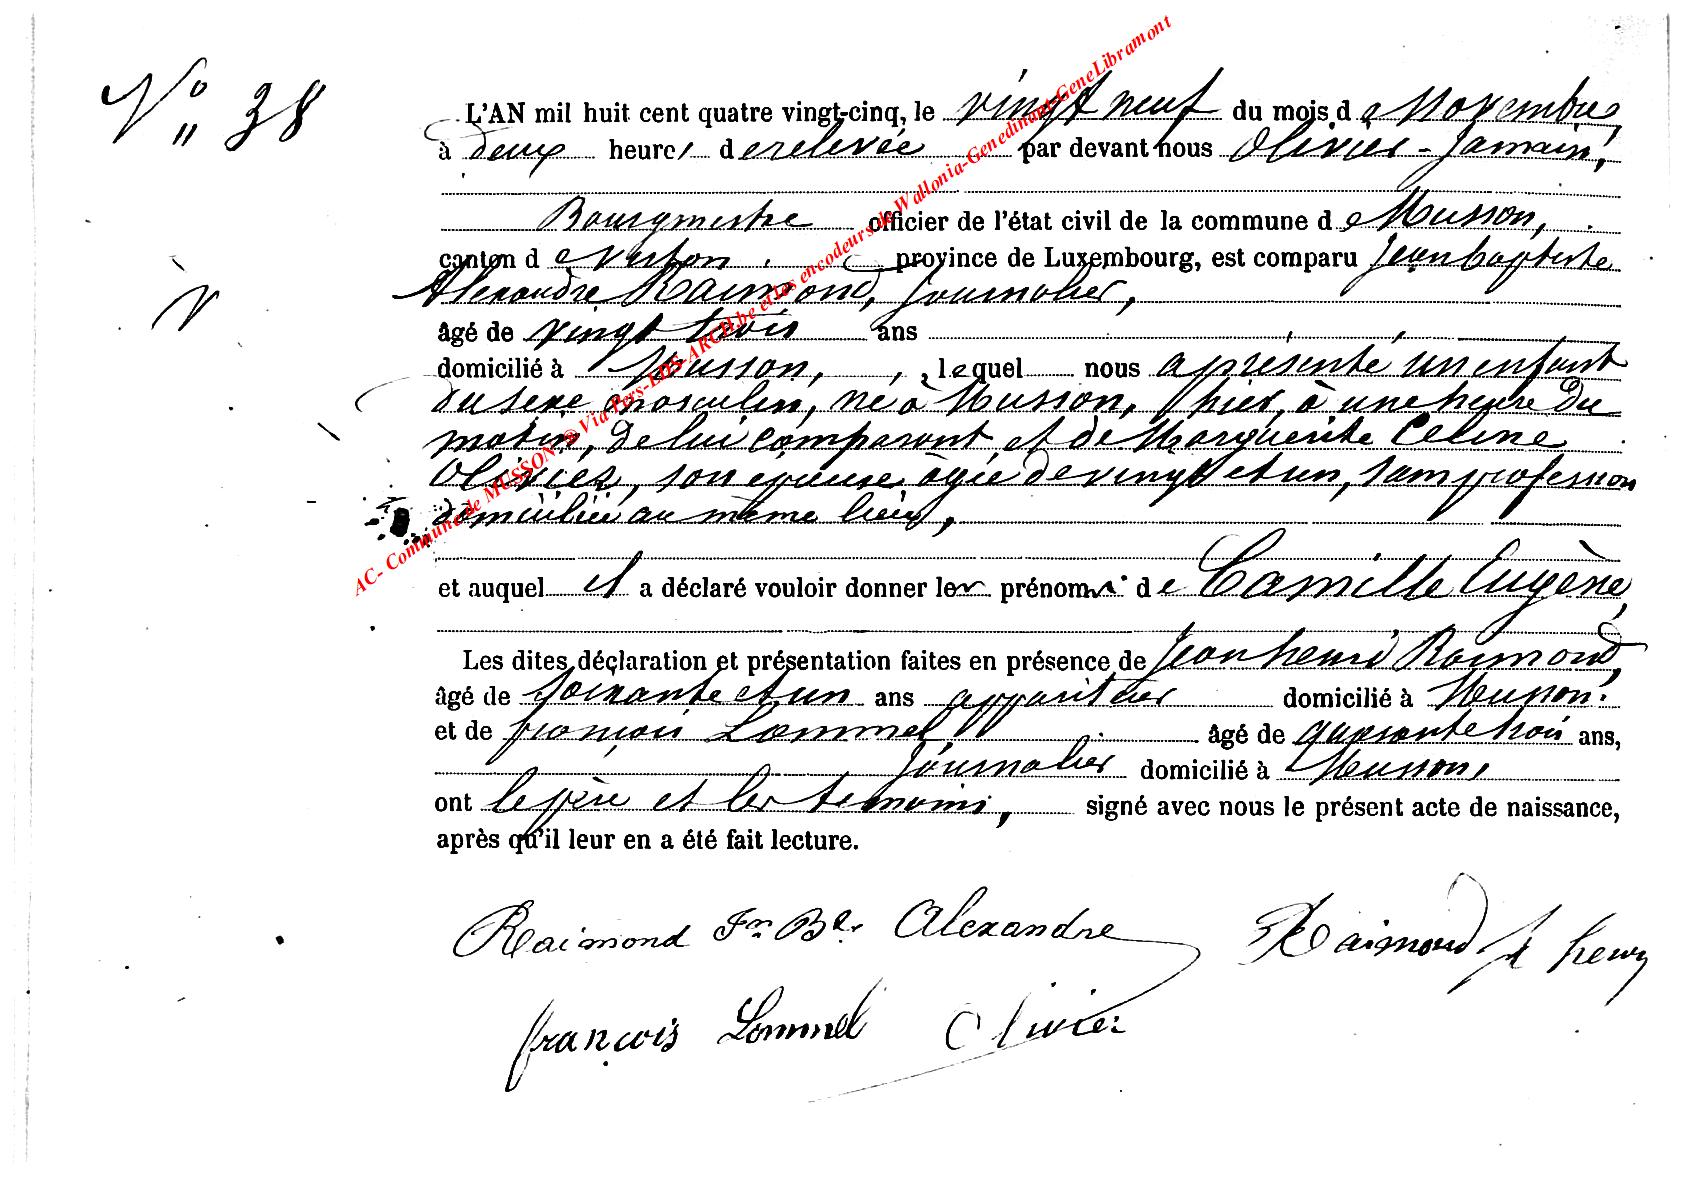 N° 38
L'AN mil huit cent quatre vingt-cinq, le vingt neuf du mois de Novembre,
à deux heures de relevée par devant nous Olivier-Jamain,
Bourgmestre officier de l'état civil de la commune de Musson,
canton de Virton, province de Luxembourg, est comparu Jean baptiste
Alexandre Raimond, Journalier,
âgé de vingt trois ans
domicilié à Musson, , lequel nous a présenté un enfant
du sexe masculin, né à Musson, hier, à une heure du
matin, de lui comparant et de Marguerite Celine
Olivier, son épouse âgée de vingt et un, sans profession
domiciliée au même lieu,
et auquel il a déclaré vouloir donner les prénoms de Camille Eugène,
Les dites déclaration et présentation faites en présence de Jean henri Raimond,
âgé de soixante et un ans appariteur domicilié à Musson.
et de françois Lommel, âgé de quarante trois ans,
Journalier domicilié à Musson,
ont le père et les temoins, signé avec nous le présent acte de naissance,
après qu'il leur en a été fait lecture.
Raimond Jn Bte Alexandre Raimond J henry
françois Lommel Olivier
AC- Commune de MUSSON @ Via Pers-LDS-ARCH.be et les encodeurs de Wallonia-Genedinant-GeneLibramont